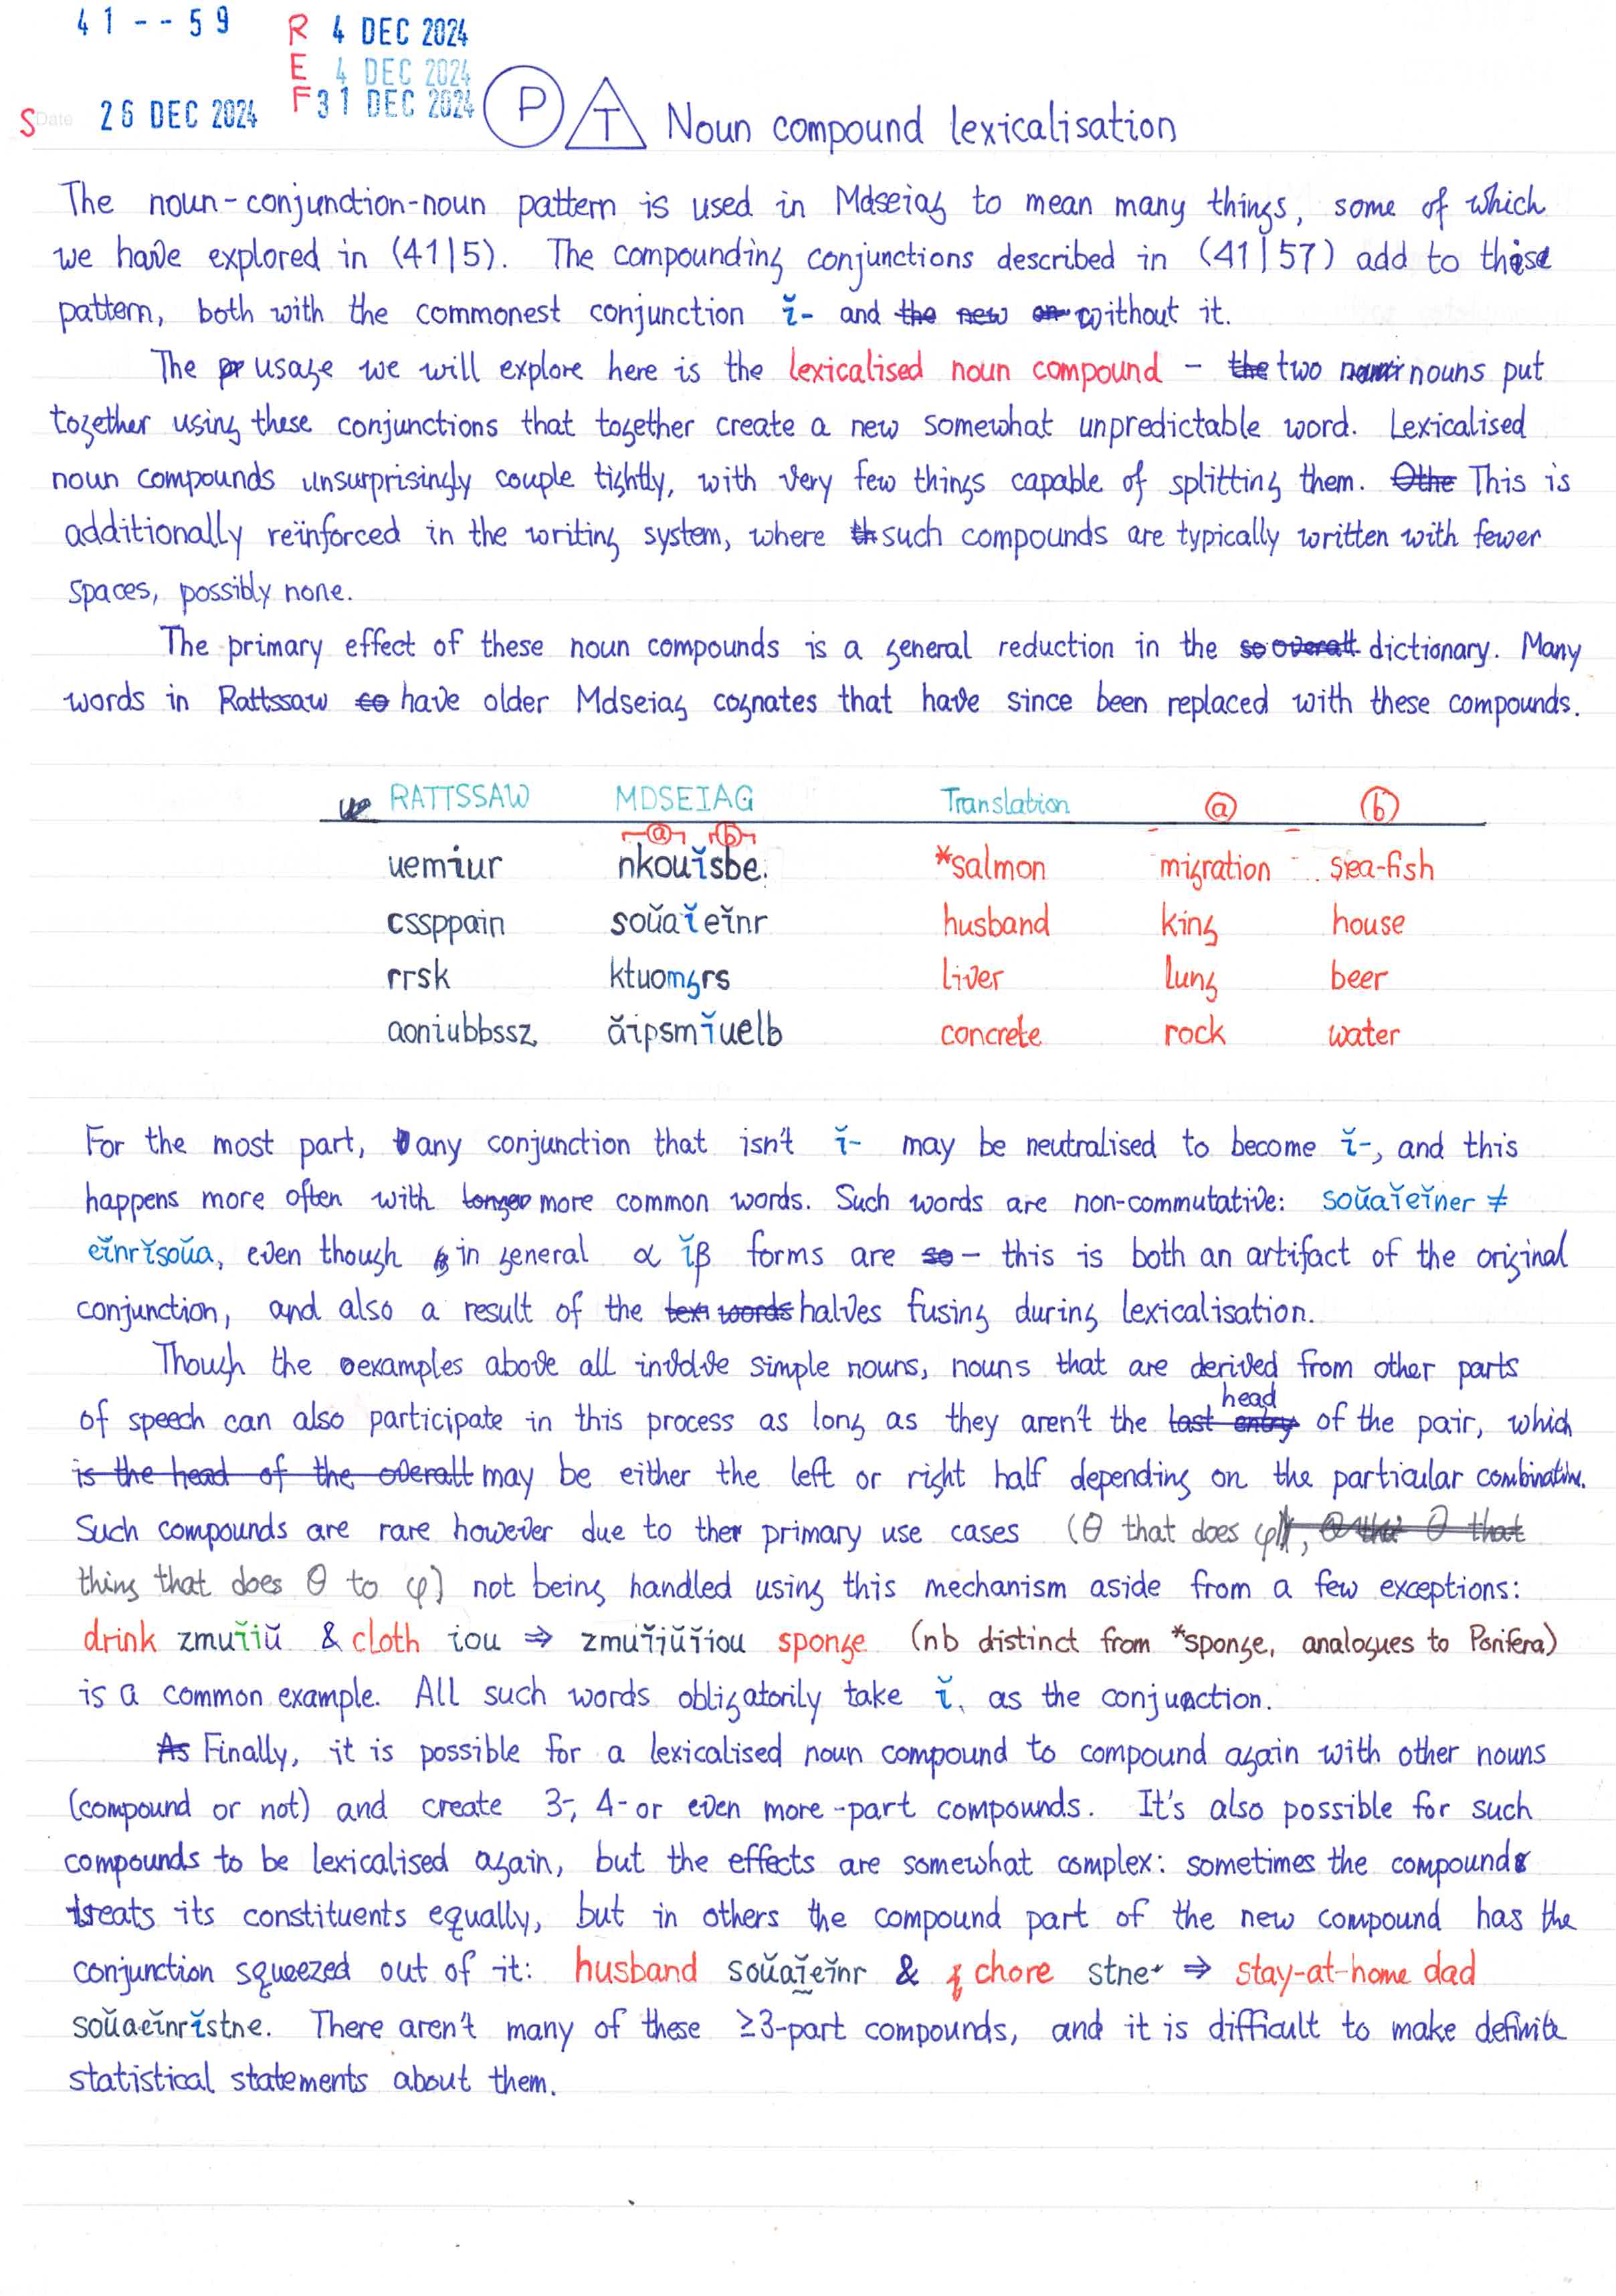 41--59
R 4 DEC 2024
E 4 DEC 2024
F 31 DEC 2024
S Date 26 DEC 2024
P T Noun compound lexicalisation
The noun-conjunction-noun pattern is used in Mdseiag to mean many things, some of which
we have explored in (41|5). The compounding conjunctions described in (41|57) add to this
pattern, both with the commonest conjunction ǐ- and the new without it.
The usage we will explore here is the lexicalised noun compound – the two nouns put
together using these conjunctions that together create a new somewhat unpredictable word. Lexicalised
noun compounds unsurprisingly couple tightly, with very few things capable of splitting them. Othe This is
additionally reïnforced in the writing system, where th such compounds are typically written with fewer
spaces, possibly none.
The primary effect of these noun compounds is a general reduction in the so overall dictionary. Many
words in Rattssaw have older Mdseiag cognates that have since been replaced with these compounds.
RATTSSAW MDSEIAG Translation ⓐ ⓑ
ⓐ ⓑ
uemiur nkouǐsbe *salmon migration sea-fish
cssppain soǔaǐeǐnr husband king house
rrsk ktuomgrs liver lung beer
aoniubbssz ǎipsmǐuelb concrete rock water
For the most part, any conjunction that isn't ǐ- may be neutralised to become ǐ-, and this
happens more often with longer more common words. Such words are non-commutative: soǔaǐeǐner ≠
eǐnrǐsoǔa, even though in general α ǐβ forms are so – this is both an artifact of the original
conjunction, and also a result of the lexi words halves fusing during lexicalisation.
Though the examples above all involve simple nouns, nouns that are derived from other parts
head
of speech can also participate in this process as long as they aren't the last entry of the pair, which
is the head of the overall may be either the left or right half depending on the particular combination.
Such compounds are rare however due to their primary use cases (θ that does φ), θ that
thing that does θ to φ) not being handled using this mechanism aside from a few exceptions:
drink zmuǐiǔ & cloth iou ⇒ zmuǐiǔǐiou sponge (nb distinct from *sponge, analogues to Porifera)
is a common example. All such words obligatorily take ǐ, as the conjunction.
As Finally, it is possible for a lexicalised noun compound to compound again with other nouns
(compound or not) and create 3-, 4- or even more-part compounds. It's also possible for such
compounds to be lexicalised again, but the effects are somewhat complex: sometimes the compound
treats its constituents equally, but in others the compound part of the new compound has the
conjunction squeezed out of it: husband soǔaǐeǐnr & chore stne ⇒ stay-at-home dad
soǔaeǐnrǐstne. There aren't many of these ≥3-part compounds, and it is difficult to make definite
statistical statements about them.